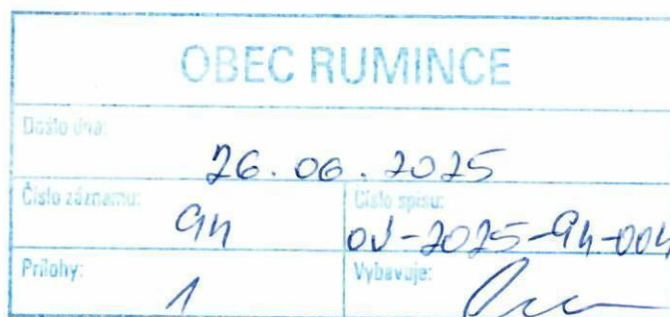 OBEC RUMINCE
Došlo dňa:
26.06.2025
Číslo záznamu: Číslo spisu:
94 OU-2025-94-004
Prílohy: Vybavuje:
1